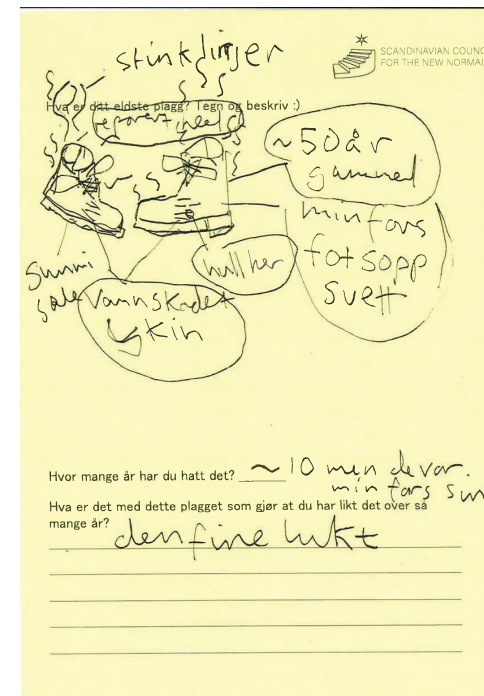 stinklinjer
SCANDINAVIAN COUNC
FOR THE NEW NORMAL
Hva er ditt eldste plagg? Tegn og beskriv :)
~50 år
gammel
min fars
fotsopp
svett
hull her
Gummi
sale
vannskadet
skin
Hvor mange år har du hatt det? ~10 men de var
min fars
Hva er det med dette plagget som gjør at du har likt det over så
mange år?
den fine lukt